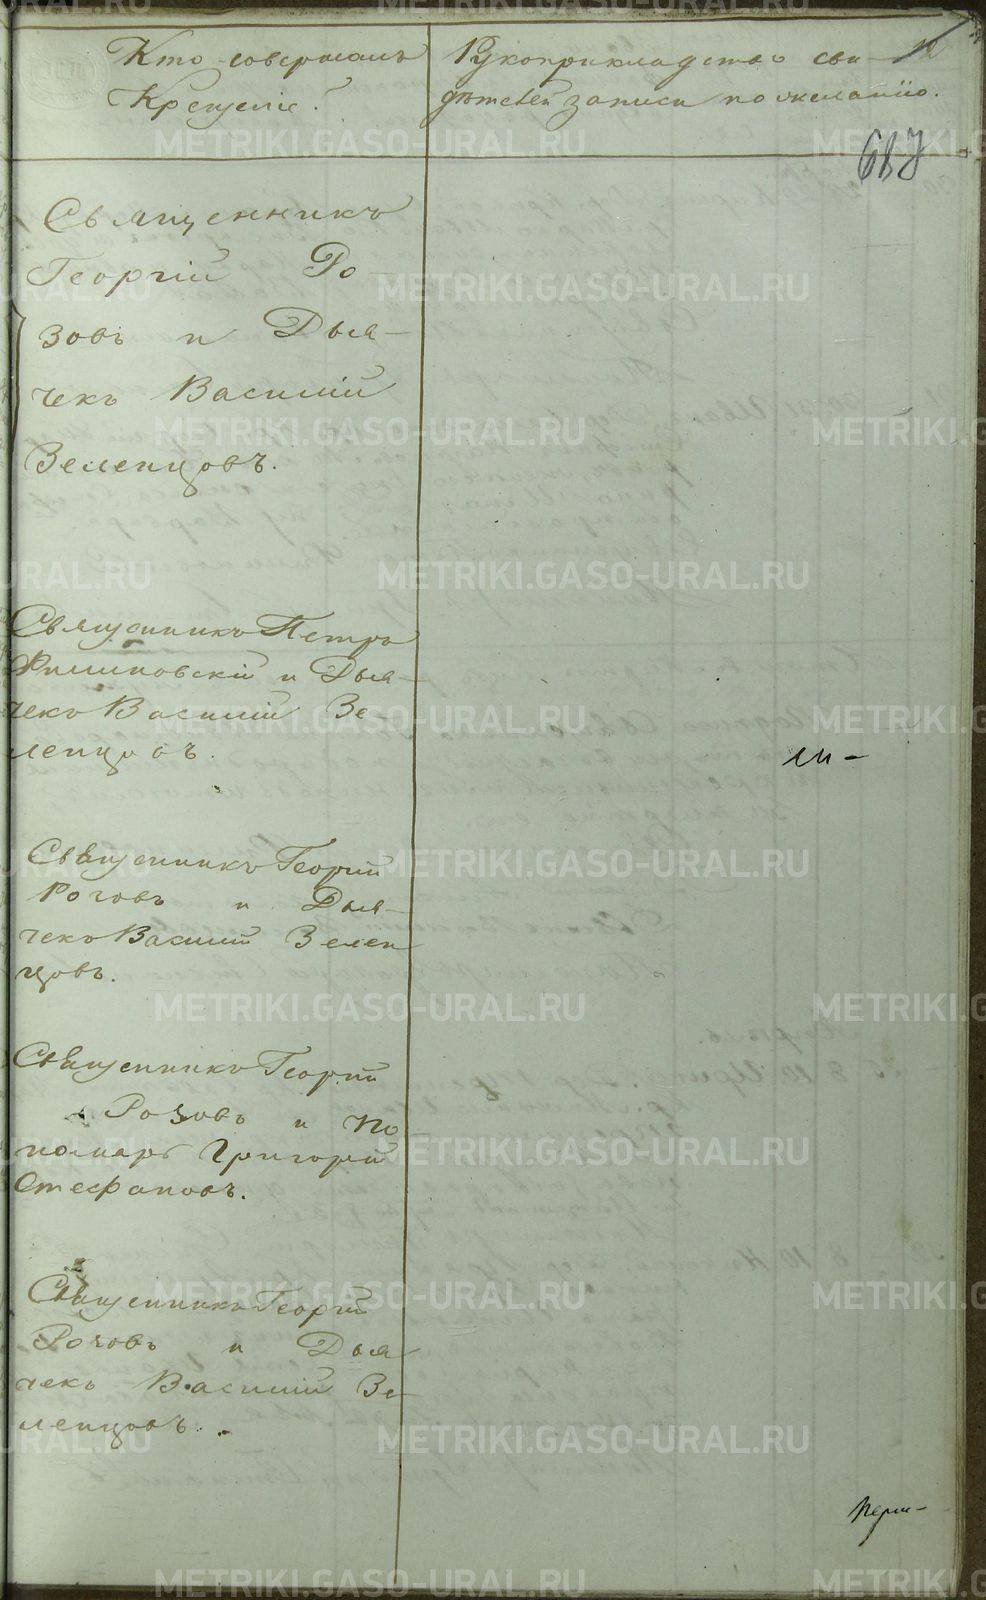 Кто совершалъ
Крещеніе?
Рукоприкладство сви-
дѣтелей записи по желанію.
Священникъ
Георгій Ро-
зовъ и Дья-
чекъ Василій
Зеленцовъ.
Священникъ Петръ
Филиповскій и Дья-
чекъ Василій Зе-
ленцовъ.
ли-
Священникъ Георгій
Розовъ и Дья-
чекъ Василій Зелен
цовъ.
Священникъ Георгій
Розовъ и По
номарь Григорій
Стефановъ.
Священникъ Георгій
Розовъ и Дья
чекъ Василій Зе-
ленцовъ.
METRIKI.GASO-URAL.RU